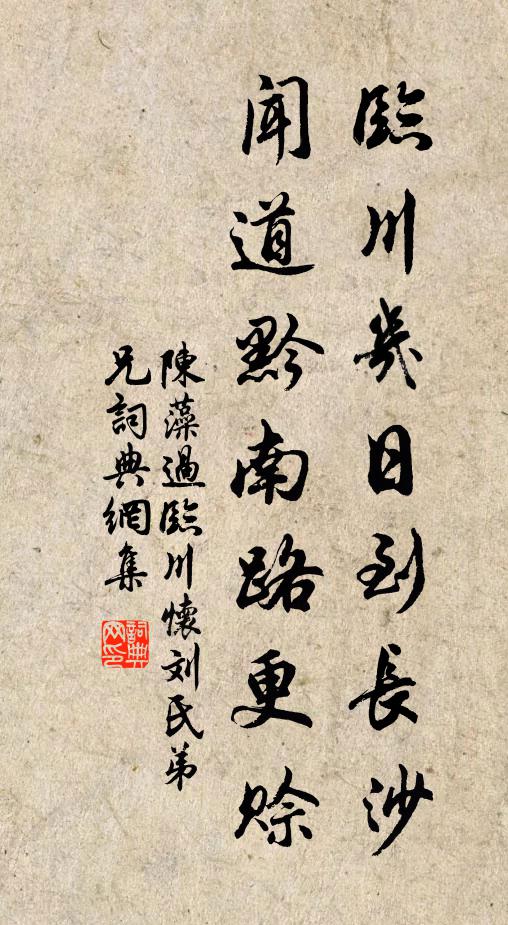 臨川幾日到長沙
聞道黔南路更賒
陳藻過臨川懷刘氏弟
兄詞典網集
詞典
网印